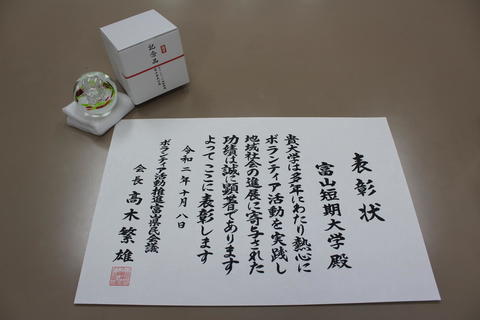 表彰状
富山短期大学殿
貴大学は多年にわたり熱心に
ボランティア活動を実践し
地域社会の進展に寄与された
功績は誠に顕著であります
よってここに表彰します
令和二年十月八日
ボランティア活動推進富山県民会議
会長 高木繁雄
記念品